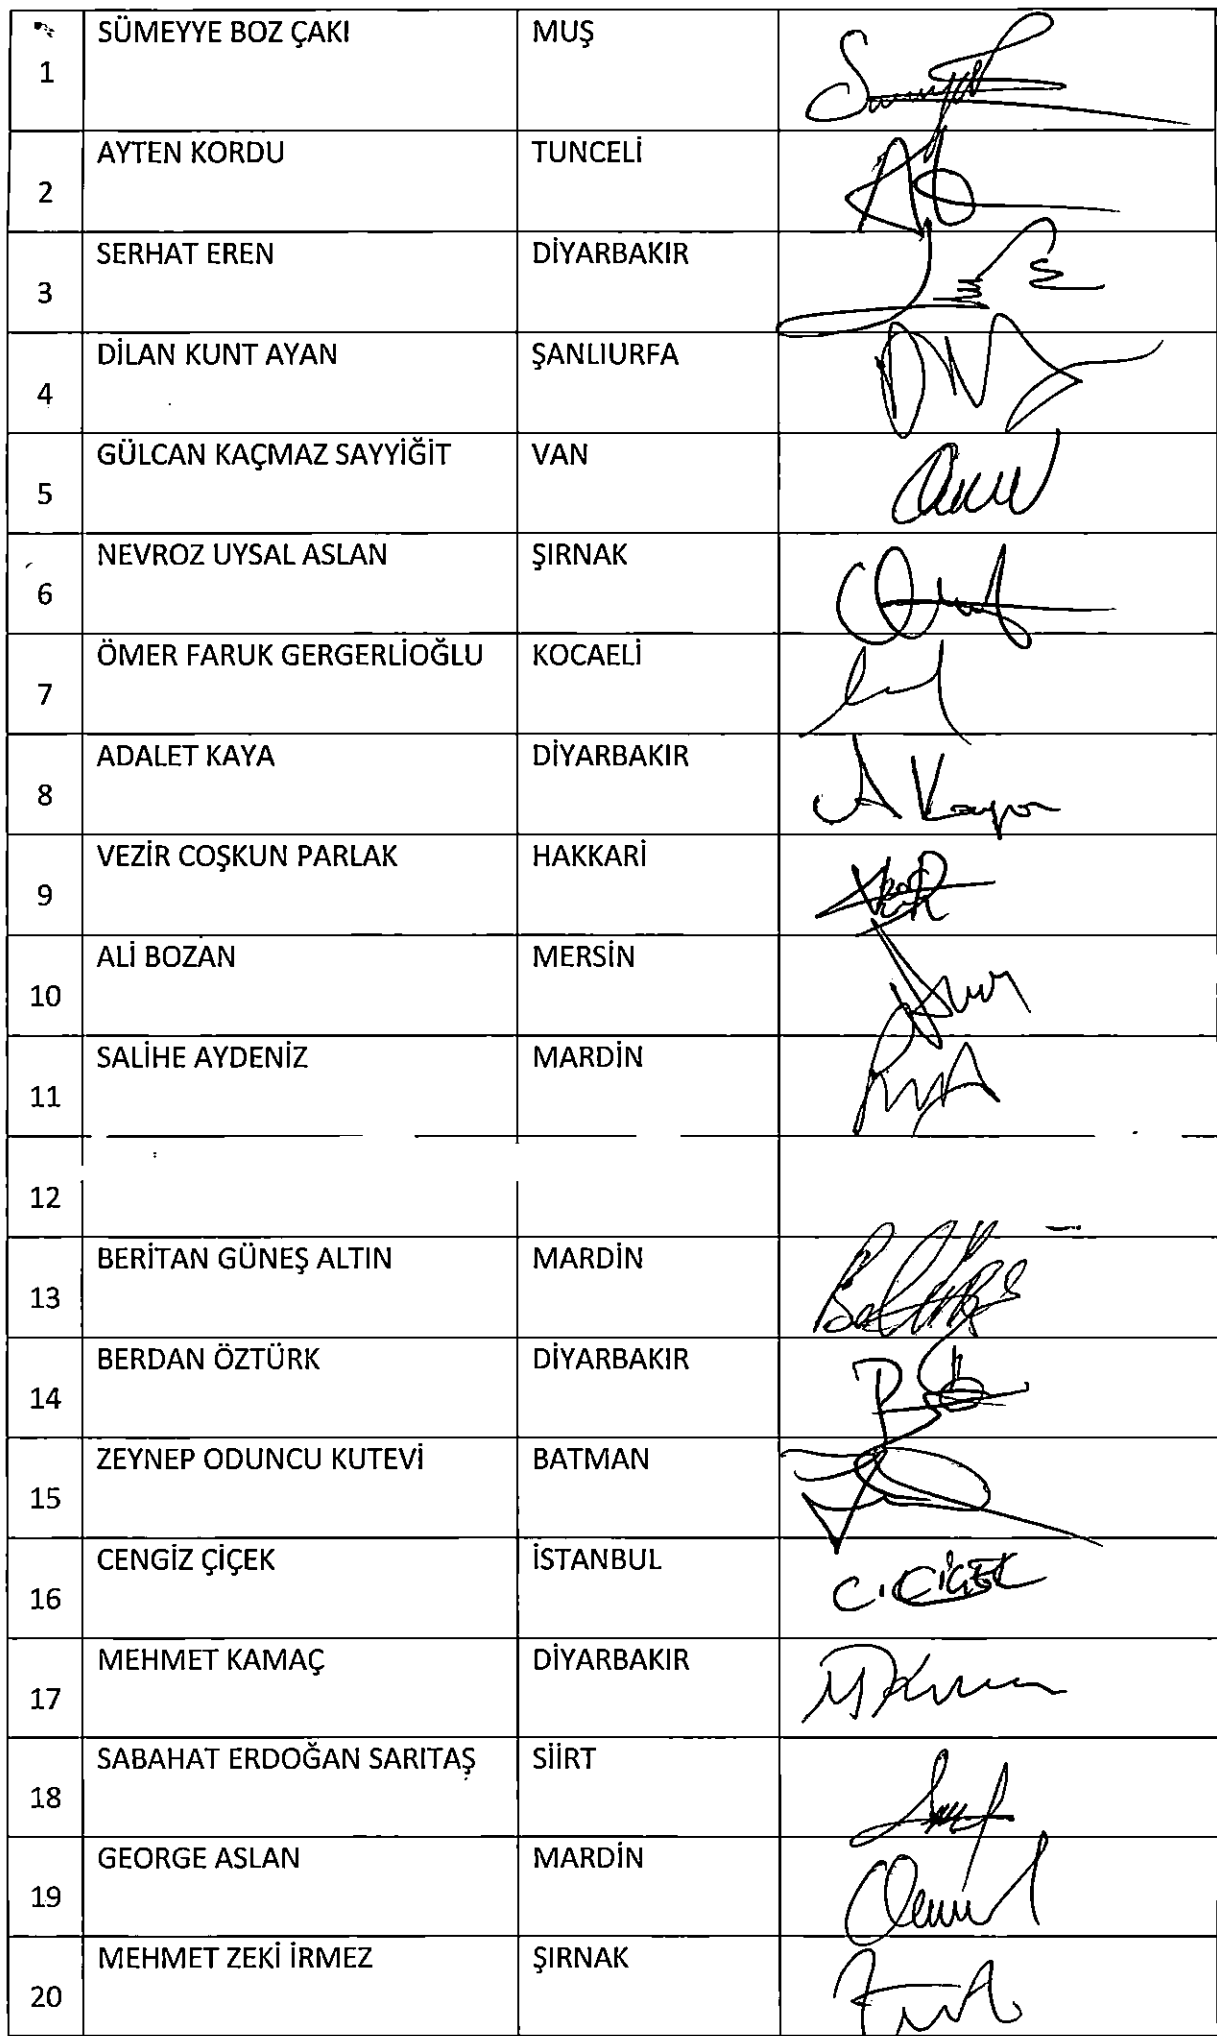 SÜMEYYE BOZ ÇAKI MUŞ
1
AYTEN KORDU TUNCELİ
2
SERHAT EREN DİYARBAKIR
3
DİLAN KUNT AYAN ŞANLIURFA
4
GÜLCAN KAÇMAZ SAYYİĞİT VAN
5
NEVROZ UYSAL ASLAN ŞIRNAK
6
ÖMER FARUK GERGERLİOĞLU KOCAELİ
7
ADALET KAYA DİYARBAKIR
8 A Kaya
VEZİR COŞKUN PARLAK HAKKARİ
9
ALİ BOZAN MERSİN
10
SALİHE AYDENİZ MARDİN
11
12
BERİTAN GÜNEŞ ALTIN MARDİN
13
BERDAN ÖZTÜRK DİYARBAKIR
14
ZEYNEP ODUNCU KUTEVİ BATMAN
15
CENGİZ ÇİÇEK İSTANBUL
16 C. ÇİÇEK
MEHMET KAMAÇ DİYARBAKIR
17
SABAHAT ERDOĞAN SARITAŞ SİİRT
18
GEORGE ASLAN MARDİN
19
MEHMET ZEKİ İRMEZ ŞIRNAK
20